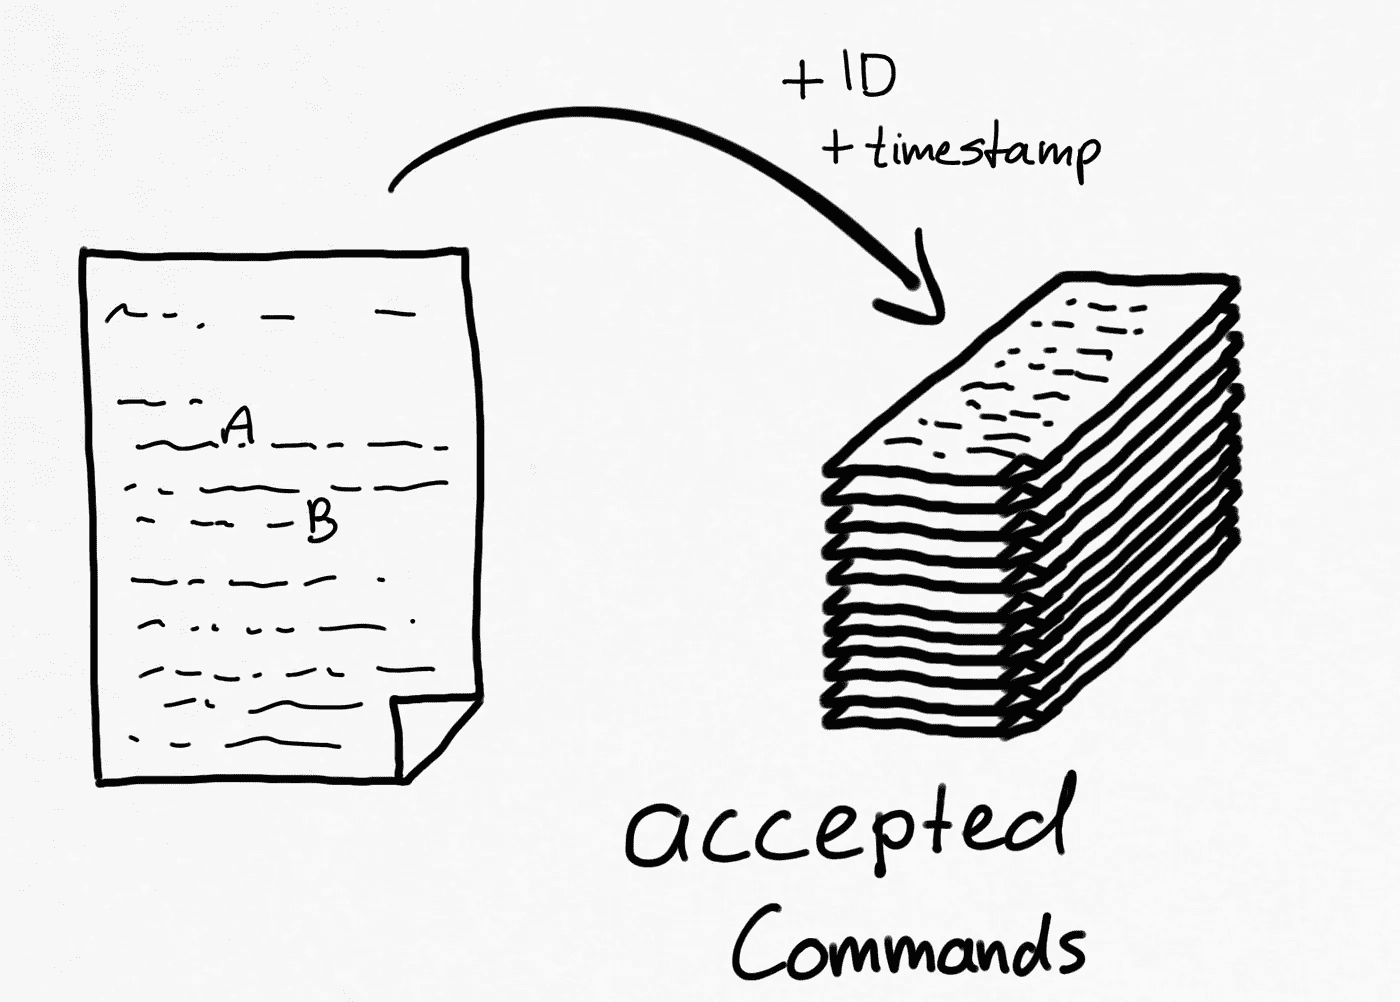 + ID
+ timestamp
A
B
accepted
Commands